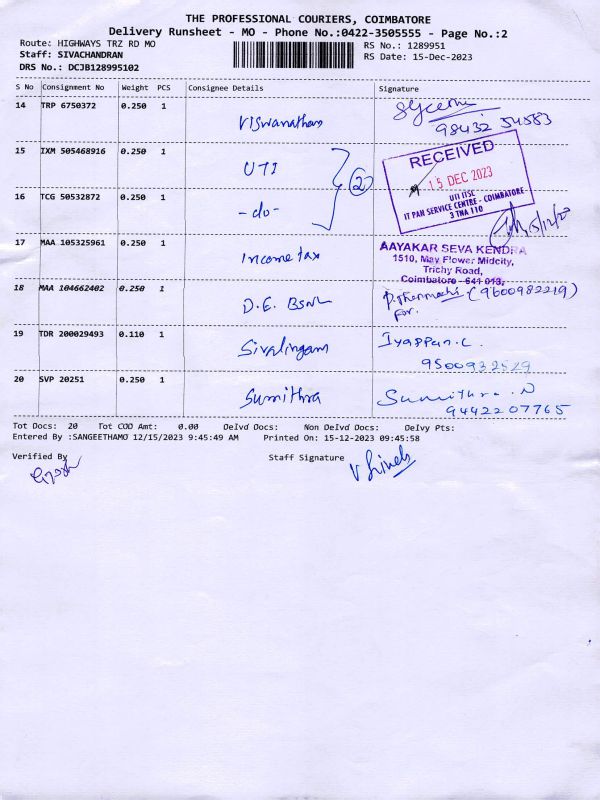 THE PROFESSIONAL COURIERS, COIMBATORE
Delivery Runsheet - MO - Phone No.:0422-3505555 - Page No.:2
Route: HIGHWAYS TRZ RD MO
RS No.: 1289951
Staff: SIVACHANDRAN
RS Date: 15-Dec-2023
DRS No.: DCJB128995102
S No Consignment No Weight PCS Consignee Details Signature
14 TRP 6750372 0.250 1 Viswanatham
98432 54583
15 IXM 505468916 0.250 1 UTI
RECEIVED
15 DEC 2023
UTI ITSC
IT PAN SERVICE CENTRE - COIMBATORE
3 TNA 110
2
16 TCG 50532872 0.250 1 -do-
15/12/23
17 MAA 105325961 0.250 1 Income tax
AAYAKAR SEVA KENDRA
1510, May Flower Midcity,
Trichy Road,
Coimbatore - 641 018.
18 MAA 104662402 0.250 1 D.E. BSNL
(9600982219)
For.
19 TDR 200029493 0.110 1 Sivalingam
Iyappan.C.
9500932529
20 SVP 20251 0.250 1 Sumithra
Sumithra.N
9442207765
Tot Docs: 20 Tot COD Amt: 0.00 Delvd Docs: Non Delvd Docs: Delvy Pts:
Entered By :SANGEETHAMO 12/15/2023 9:45:49 AM Printed On: 15-12-2023 09:45:58
Verified By
Staff Signature